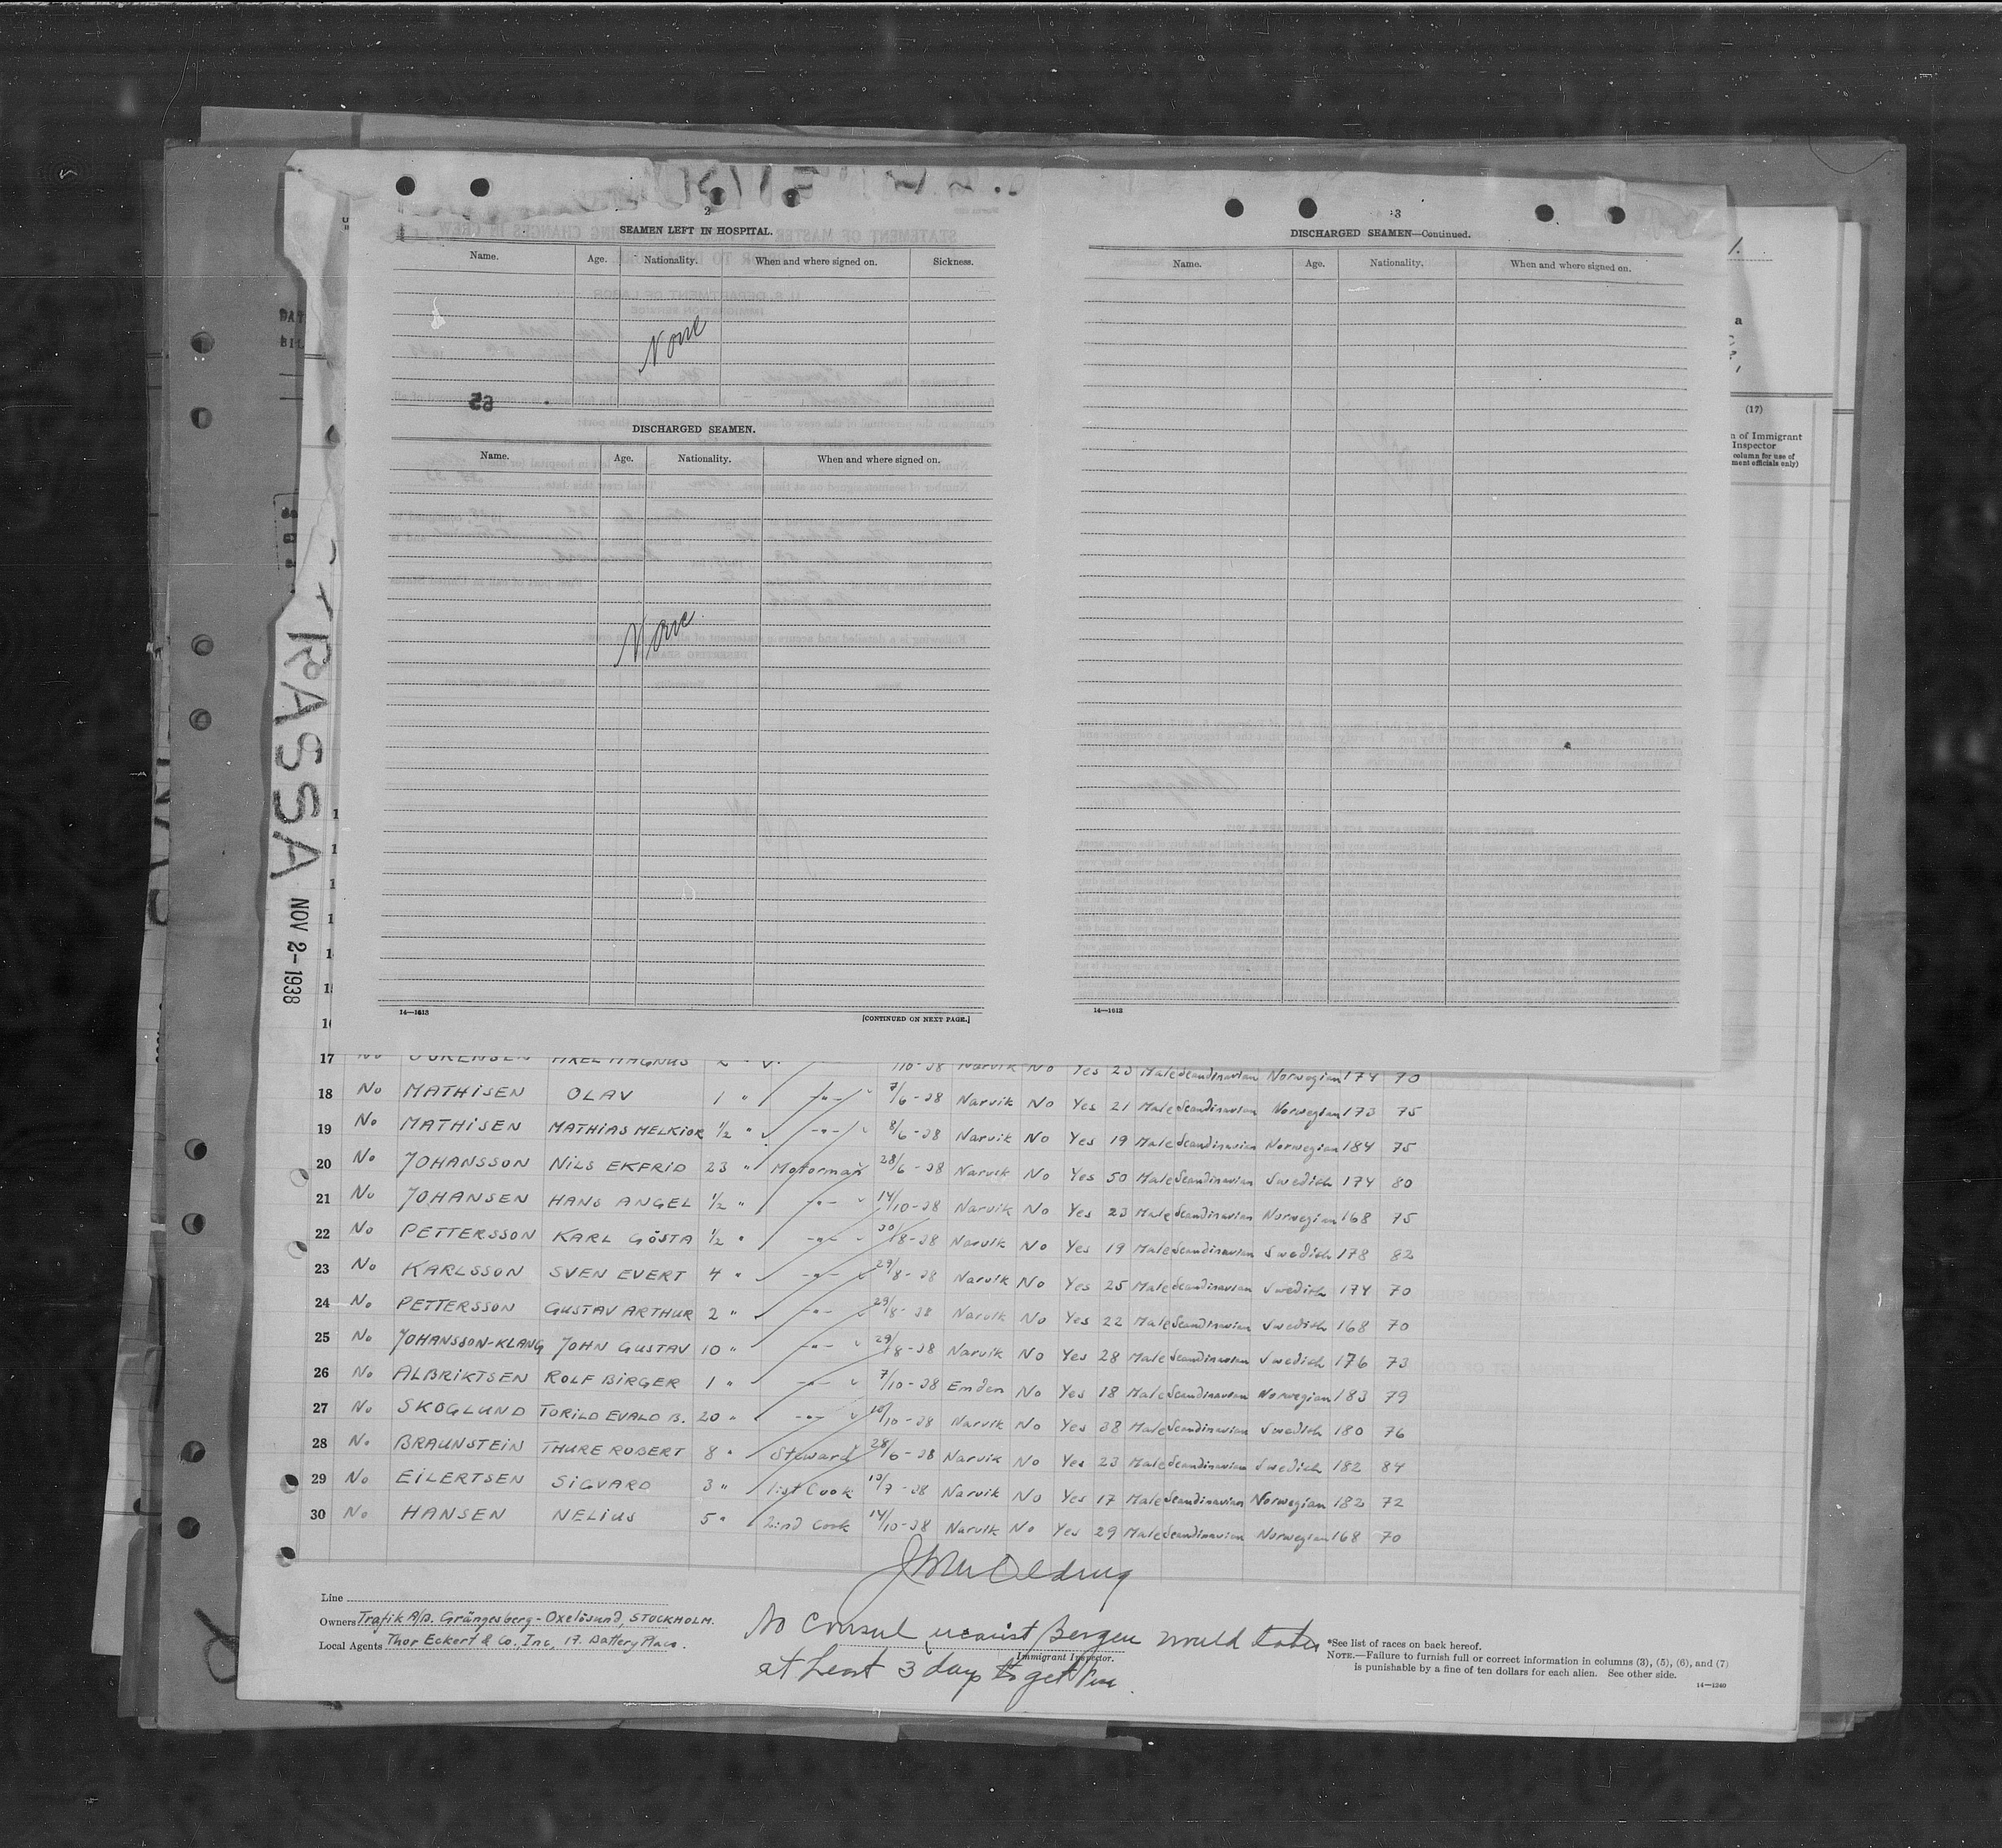 2
SEAMEN LEFT IN HOSPITAL.
Name. Age. Nationality. When and where signed on. Sickness.
None
65
DISCHARGED SEAMEN.
Name. Age. Nationality. When and where signed on.
None
14—1613
[CONTINUED ON NEXT PAGE.]
3
DISCHARGED SEAMEN—Continued.
Name. Age. Nationality. When and where signed on.
14—1613
(17)
of Immigrant
Inspector
column for use of
ment officials only)
RASSA
NOV 2-1938
17 AXEL MAGNUS 2 " 10-38 Narvik No Yes 23 Male Scandinavian Norwegian 174 70
18 No MATHISEN OLAV 1 " -"- 7/6-38 Narvik No Yes 21 Male Scandinavian Norwegian 173 75
19 No MATHISEN MATHIAS MELKIOR 1/2 " -"- 8/6-38 Narvik No Yes 19 Male Scandinavian Norwegian 184 75
20 No JOHANSSON NILS EKFRID 23 " Motorman 28/6-38 Narvik No Yes 50 Male Scandinavian Swedish 174 80
21 No JOHANSEN HANS ANGEL 1/2 " -"- 14/10-38 Narvik No Yes 23 Male Scandinavian Norwegian 168 75
22 No PETTERSSON KARL GÖSTA 1/2 " -"- 30/8-38 Narvik No Yes 19 Male Scandinavian Swedish 178 82
23 No KARLSSON SVEN EVERT 4 " -"- 29/8-38 Narvik No Yes 25 Male Scandinavian Swedish 174 70
24 No PETTERSSON GUSTAV ARTHUR 2 " -"- 29/8-38 Narvik No Yes 22 Male Scandinavian Swedish 168 70
25 No JOHANSSON-KLANG JOHN GUSTAV 10 " -"- 29/8-38 Narvik No Yes 28 Male Scandinavian Swedish 176 73
26 No ALBRIKTSEN ROLF BIRGER 1 " -"- 7/10-38 Emden No Yes 18 Male Scandinavian Norwegian 183 79
27 No SKOGLUND TORILD EVALD B. 20 " -"- /10-38 Narvik No Yes 38 Male Scandinavian Swedish 180 76
28 No BRAUNSTEIN THURE ROBERT 8 " Steward 28/6-38 Narvik No Yes 23 Male Scandinavian Swedish 182 84
29 No EILERTSEN SIGVARD 3 " 1:st Cook 13/7-38 Narvik No Yes 17 Male Scandinavian Norwegian 182 72
30 No HANSEN NELIUS 5 " 2:nd Cook 14/10-38 Narvik No Yes 29 Male Scandinavian Norwegian 168 70
Line
Owners Trafik A/B. Grängesberg-Oxelösund, STOCKHOLM.
Local Agents Thor Eckert & Co. Inc, 17. Battery Place.
No Consul nearest Bergen would take
Immigrant Inspector.
at least 3 days to get
*See list of races on back hereof.
NOTE.—Failure to furnish full or correct information in columns (3), (5), (6), and (7)
is punishable by a fine of ten dollars for each alien. See other side.
14—1240